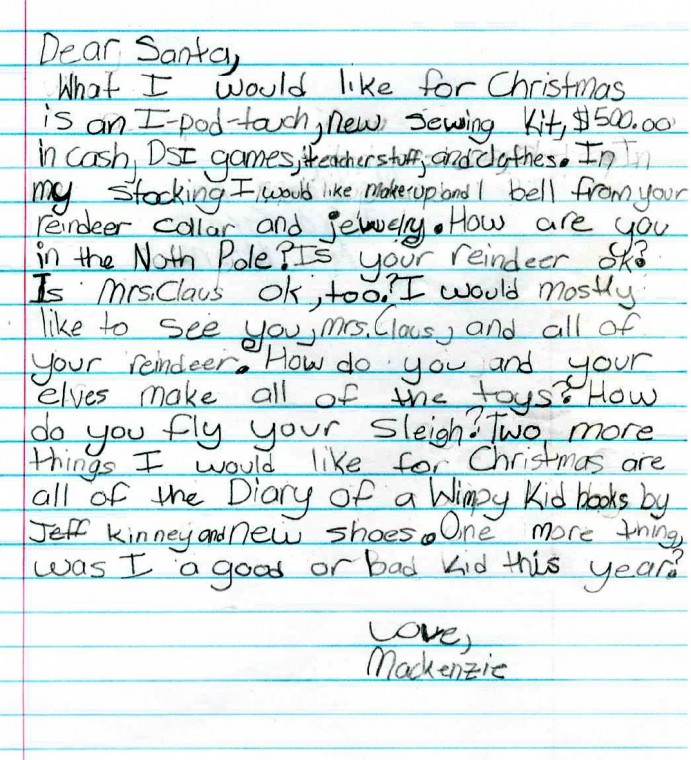 Dear Santa,
What I would like for Christmas
is an I-pod-touch, new sewing kit, $500.00
in cash, DSI games, teacher stuff, and clothes. In
my stocking I would like make-up and 1 bell from your
reindeer collar and jewelry. How are you
in the Noth Pole? Is your reindeer ok?
Is Mrs.Claus ok, too? I would mostly
like to see you, Mrs.Claus, and all of
your reindeer. How do you and your
elves make all of the toys? How
do you fly your sleigh? Two more
things I would like for Christmas are
all of the Diary of a Wimpy Kid books by
Jeff Kinney and new shoes. One more thing,
was I a good or bad kid this year?
Love,
Mackenzie